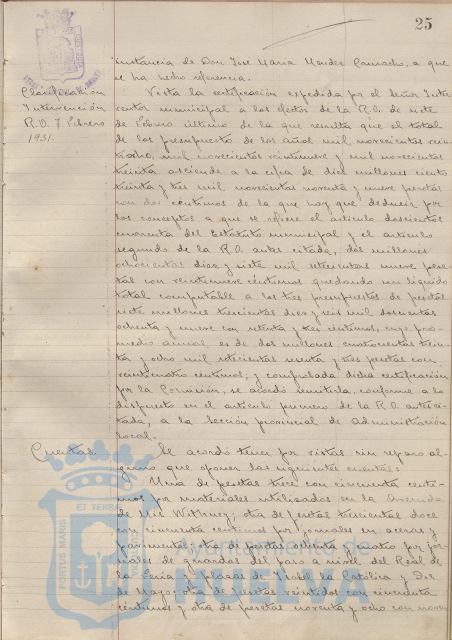 25
instancia de Don José Maria Mendez Camacho, a que
se ha hecho referencia.
Clasificación
Intervención
R.O. 7 Febrero
1931.
Vista la certificación expedida por el Señor Inter
ventor municipal a los efectos de la R.O. de siete
de Febrero último de la que resulta que el total
de los presupuesto de los años mil novecientos vein
tiocho, mil novecientos veintinueve y mil novecientos
treinta asciende a la cifra de diez millones ciento
treinta y tres mil novecientos noventa y nueve pesetas
con dos céntimos de la que hay que deducir por
los conceptos a que se refiere el artículo doscientos
cuarenta del Estatuto municipal y el artículo
segundo de la R.O. antes citada, dos millones
ochocientas diez y siete mil setecientas nueve pese
tas con veintinueve céntimos quedando un líquido
total computable a los tres presupuestos de pesetas
siete millones trescientas diez y seis mil doscientas
ochenta y nueve con setenta y tres céntimos, cuyo pro
medio anual es de dos millones cuatrocientas trein
ta y ocho mil setecientas sesenta y tres pesetas con
veinticuatro céntimos; y comprobada dicha certificación
por la Comisión, se acordó remitirla, conforme a lo
dispuesto en el artículo primero de la R.O. antes ci
tada, a la Sección provincial de Administración
local.
Cuentas.
Se acordó tener por vistas sin reparo al
guno que oponer las siguientes cuentas:
Una de pesetas trece con cincuenta cénti
mos por materiales utilizados en la Avenida
de Mis Withney; otra de pesetas trescientas doce
con cincuenta céntimos por jornales en aceras y
pavimentos; otra de pesetas ochenta y cuatro por jor
nales de guardas del paso a nivel del Real de
la Feria y plazas de Isabel la Católica y Dos
de Mayo; otra de pesetas veintidos con cincuenta
céntimos y otra de pesetas noventa y ocho con noven
ET TERRA
PORTUS MARIS
Ayuntamiento de
HUELVA